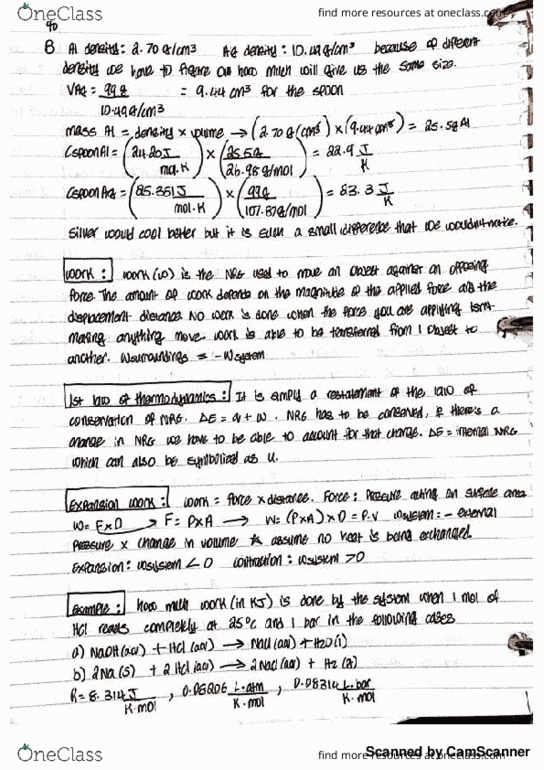 OneClass
find more resources at oneclass.com
B Al density: 2.70 g/cm³ Ag density: 10.49 g/cm³ because of different
density we have to figure out how much will give us the same size.
VAg = 99g = 9.44 cm³ for the spoon
10.49 g/cm³
mass Al = density x volume → (2.70 g/cm³) x (9.44 cm³) = 25.5g Al
CspoonAl = (24.20 J / mol·K) x (25.5g / 26.98 g/mol) = 22.9 J/K
CspoonAg = (25.351 J / mol·K) x (99g / 107.87 g/mol) = 23.3 J/K
Silver would cool better but it is such a small difference that we wouldn't notice.
Work: Work (w) is the NRG used to move an object against an opposing
force. The amount of work depends on the magnitude of the applied force and the
displacement distance. No work is done when the force you are applying isn't
making anything move. Work is able to be transferred from 1 object to
another. Wsurroundings = -Wsystem
1st law of thermodynamics: It is simply a restatement of the law of
conservation of NRG. ΔE = q + w. NRG has to be conserved, if there's a
change in NRG we have to be able to account for that change. ΔE = internal NRG
which can also be symbolized as U.
Expansion work: work = force x distance. Force: Pressure acting on surface area
W = F x D F = P x A → W = (P x A) x D = P·V Wsystem = - external
pressure x change in volume * assume no heat is being exchanged.
Expansion: Wsystem < 0 contraction: Wsystem > 0
Example: how much work (in KJ) is done by the system when 1 mol of
HCl reacts completely at 25°C and 1 bar in the following cases
a) NaOH(aq) + HCl(aq) → NaCl(aq) + H2O(l)
b) 2Na(s) + 2HCl(aq) → 2NaCl(aq) + H2(g)
R = 8.314 J / K·mol , 0.08206 L·atm / K·mol , 0.08314 L·bar / K·mol
Scanned by CamScanner
OneClass
find more resources at oneclass.com